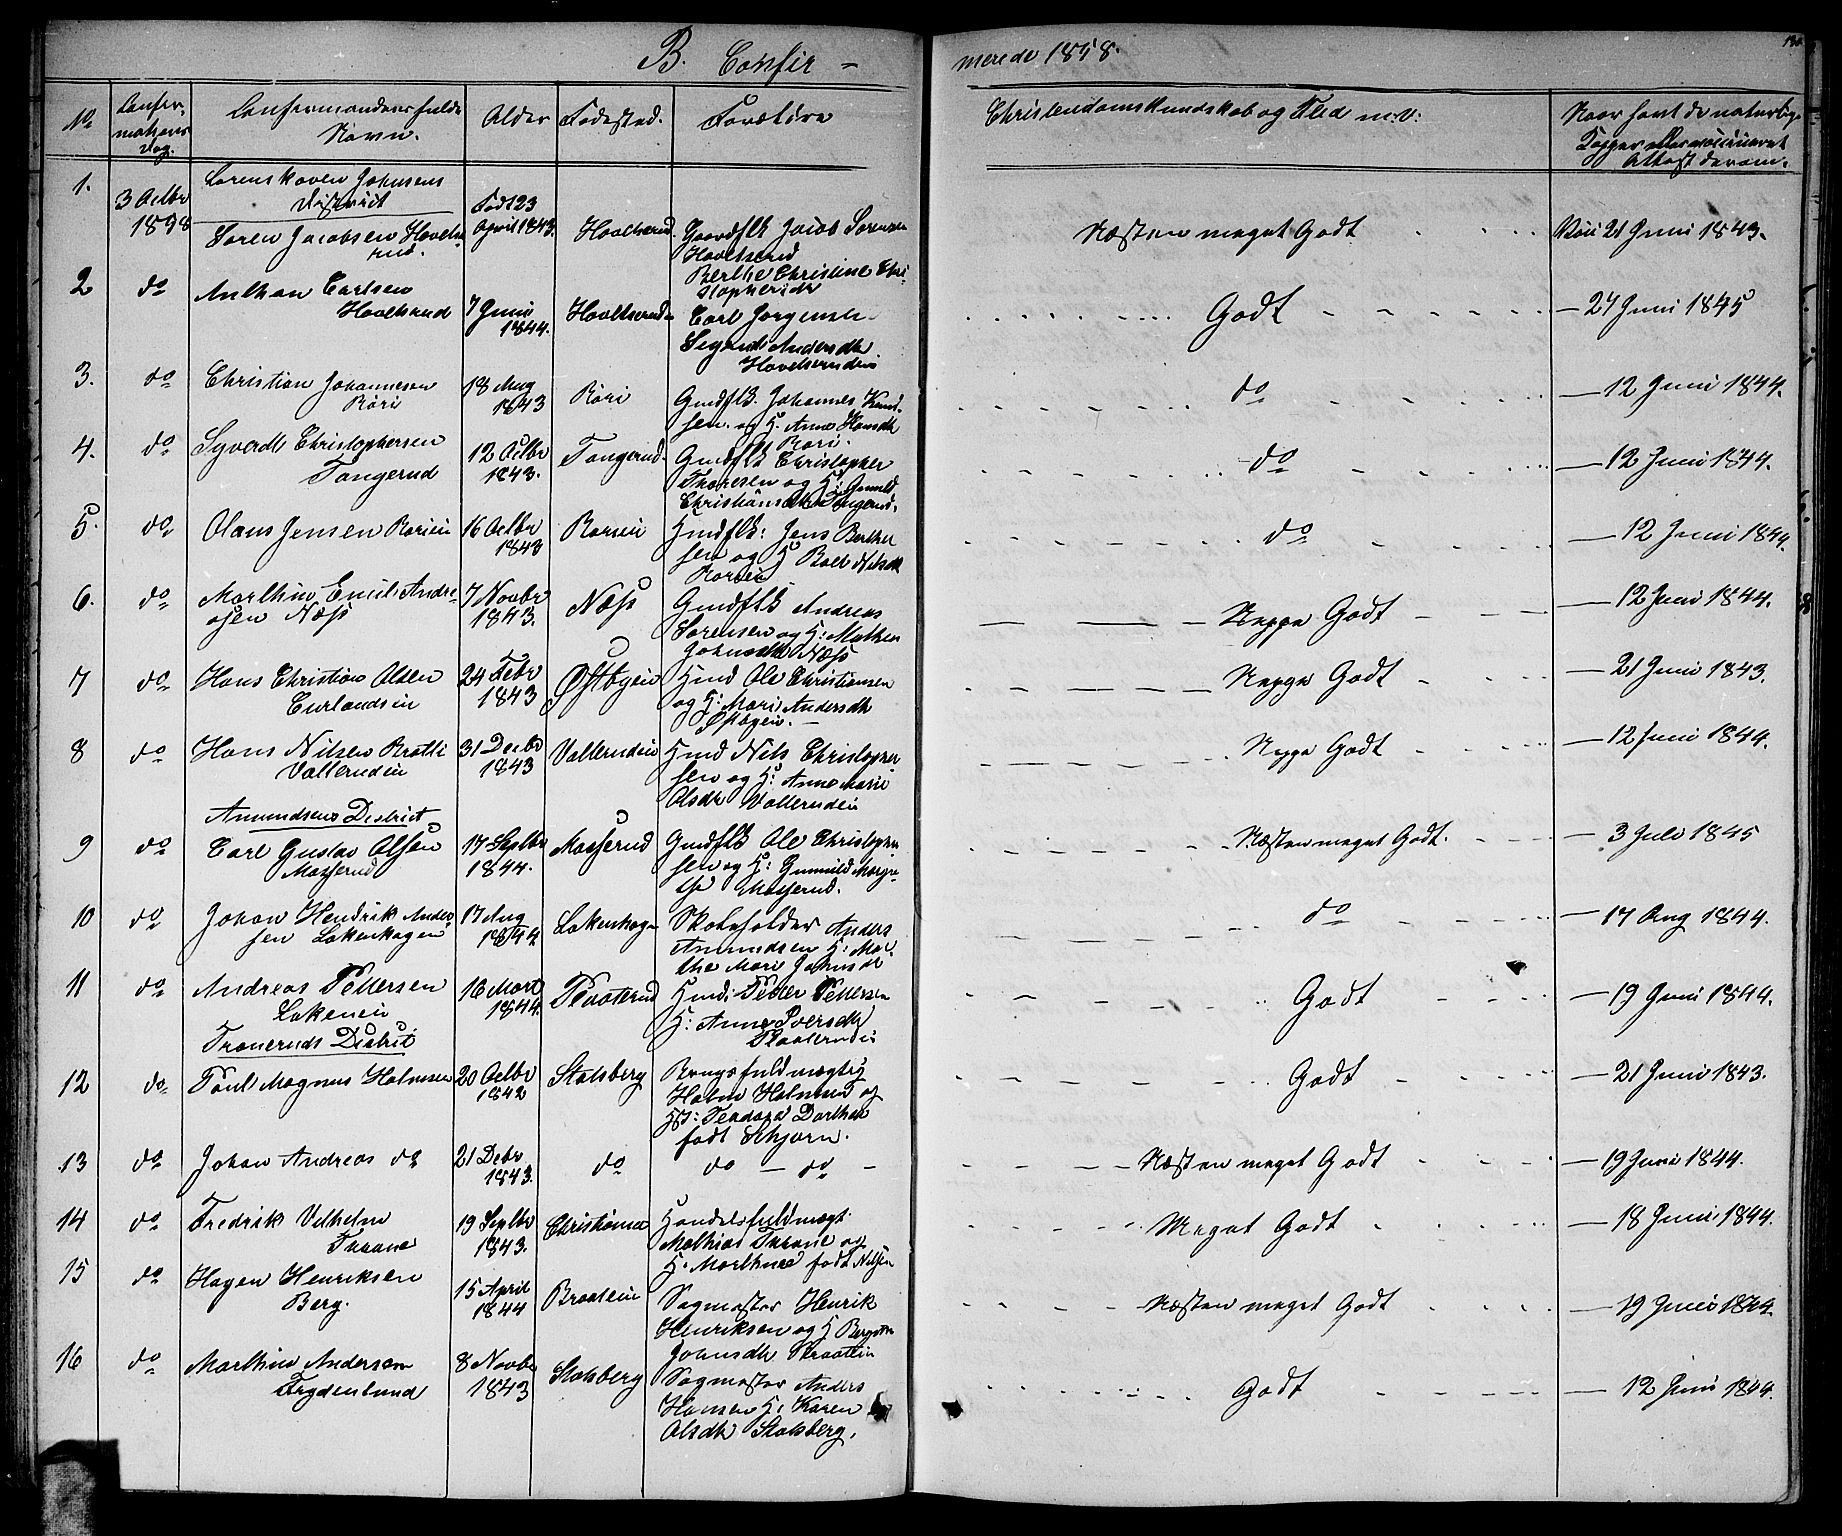 B. Confir-
merede 1858.
No
Confirmations Dag.
Confirmandens fulde Navn.
Alder
Fødested.
Forældre
Christendomskundskab og Flid m.v:
Naar havt de naturlige Kopper eller vaccineret Attest derom.
1.
3 Octbr 1858
Lorenskoven Johnsens District
Søren Jacobsen Hovelsrud.
Født 23 April 1843.
Hovelsrud.
Gaardflk Jacob Sørensen
Hovelsrud
Berthe Christine Chri-
stophersdr
Næsten meget Godt
21 Juni 1843.
2
do
Anthon Carlsen
Hovelsrud
7 Juni
1844.
Hovelsrud
Carl Jørgensen
Sigrid Andersdtr
Hovelsrudeie
Godt
24 Juni 1845
3.
do
Christian Johannesen
Røri
18 Aug
1843
Røri
Gmdflk. Johannes Knud-
sen og H. Anne Hansdtr
Røri.
do
12 Juni 1844.
4.
do
Syverdt Christophersen
Tangerud
12 Octbr
1843.
Tangerud
Gmdflk Christopher
Thoresen og H: Gunild
Christiansdtr Tangerud.
do
12 Juni 1844.
5.
do
Olaus Jensen Røriei
16 Octbr
1843
Røriei
Hmdflk: Jens Berthel
sen og H Boel Nilsdtr
Røriei
do
12 Juni 1844.
6.
do
Marthin Emil Andre-
asen Næss
7 Novbr
1843.
Næss
Gmdflk Andreas
Sørensen og H: Mathea
Johnsdtr Næss
Neppe Godt
12 Juni 1844.
7
do
Hans Christian Olsen
Eurlandseie
24 Febr
1843
Østbyeie
Hmd Ole Christiansen
og H: Mari Andersdtr
Østbyeie.
Neppe Godt
21 Juni 1843.
8
do
Hans Nilsen Bratli
Vallerudeie
31 Decbr
1843
Vallerudeie
Hmd Nils Christopher
sen og H: Anne Marie
Olsdtr Vallerudeie
Neppe Godt
12 Juni 1844.
Amundsens District
9
do
Carl Gustav Olsen
Masserud
17 Septbr
1844.
Masserud
Gmdflk Ole Christopher
sen og H: Gunnild Margre-
the Masserud.
Næsten meget Godt.
3 Juli 1845
10
do
Johan Hendrik Ander
sen Løkenhagen
17 Aug
1844
Løkenhagen
Skoleholder Anders
Amundsen H: Ma-
the Mari Johnsdtr
do
17 Aug 1844.
11
do
Andreas Pettersen
Løkeneie
16 Mart
1844.
Plaaterud
Hmd: Petter Pettersen
H: Anne Iversdtr
Plaaterudeie
Godt
19 Juni 1844.
Tranerends District
12
do
Poul Magnus Holmsen
20 Octbr
1842
Stalsberg
Brugsfuldmægtig
Holm Holmsen og
H: Teodora Dorthea
født Schjørn.
Godt
21 Juni 1843.
13
do
Johan Andreas do
21 Decbr
1843.
do
do - do -
Næsten meget Godt
19 Juni 1844.
14
do
Fredrik Vilhelm
Thrane
19 Septbr
1843.
Christiania
Handelsfuldmægt
Mathias Thrane og
H. Marthine født Nilsen
Meget Godt
18 Juni 1844.
15
do
Hagen Henriksen
Berg.
15 April
1844
Braateie
Sagmester Henrik
Henriksen og H Bergitte
Johnsdtr Braateie
Næsten meget Godt
19 Juni 1844.
16
do
Marthin Andersen
Frydenlund
8 Novbr
1843
Stalsberg
Sagmester Anders
Hansen H: Karen
Olsdtr Stalsberg.
Godt
12 Juni 1844.